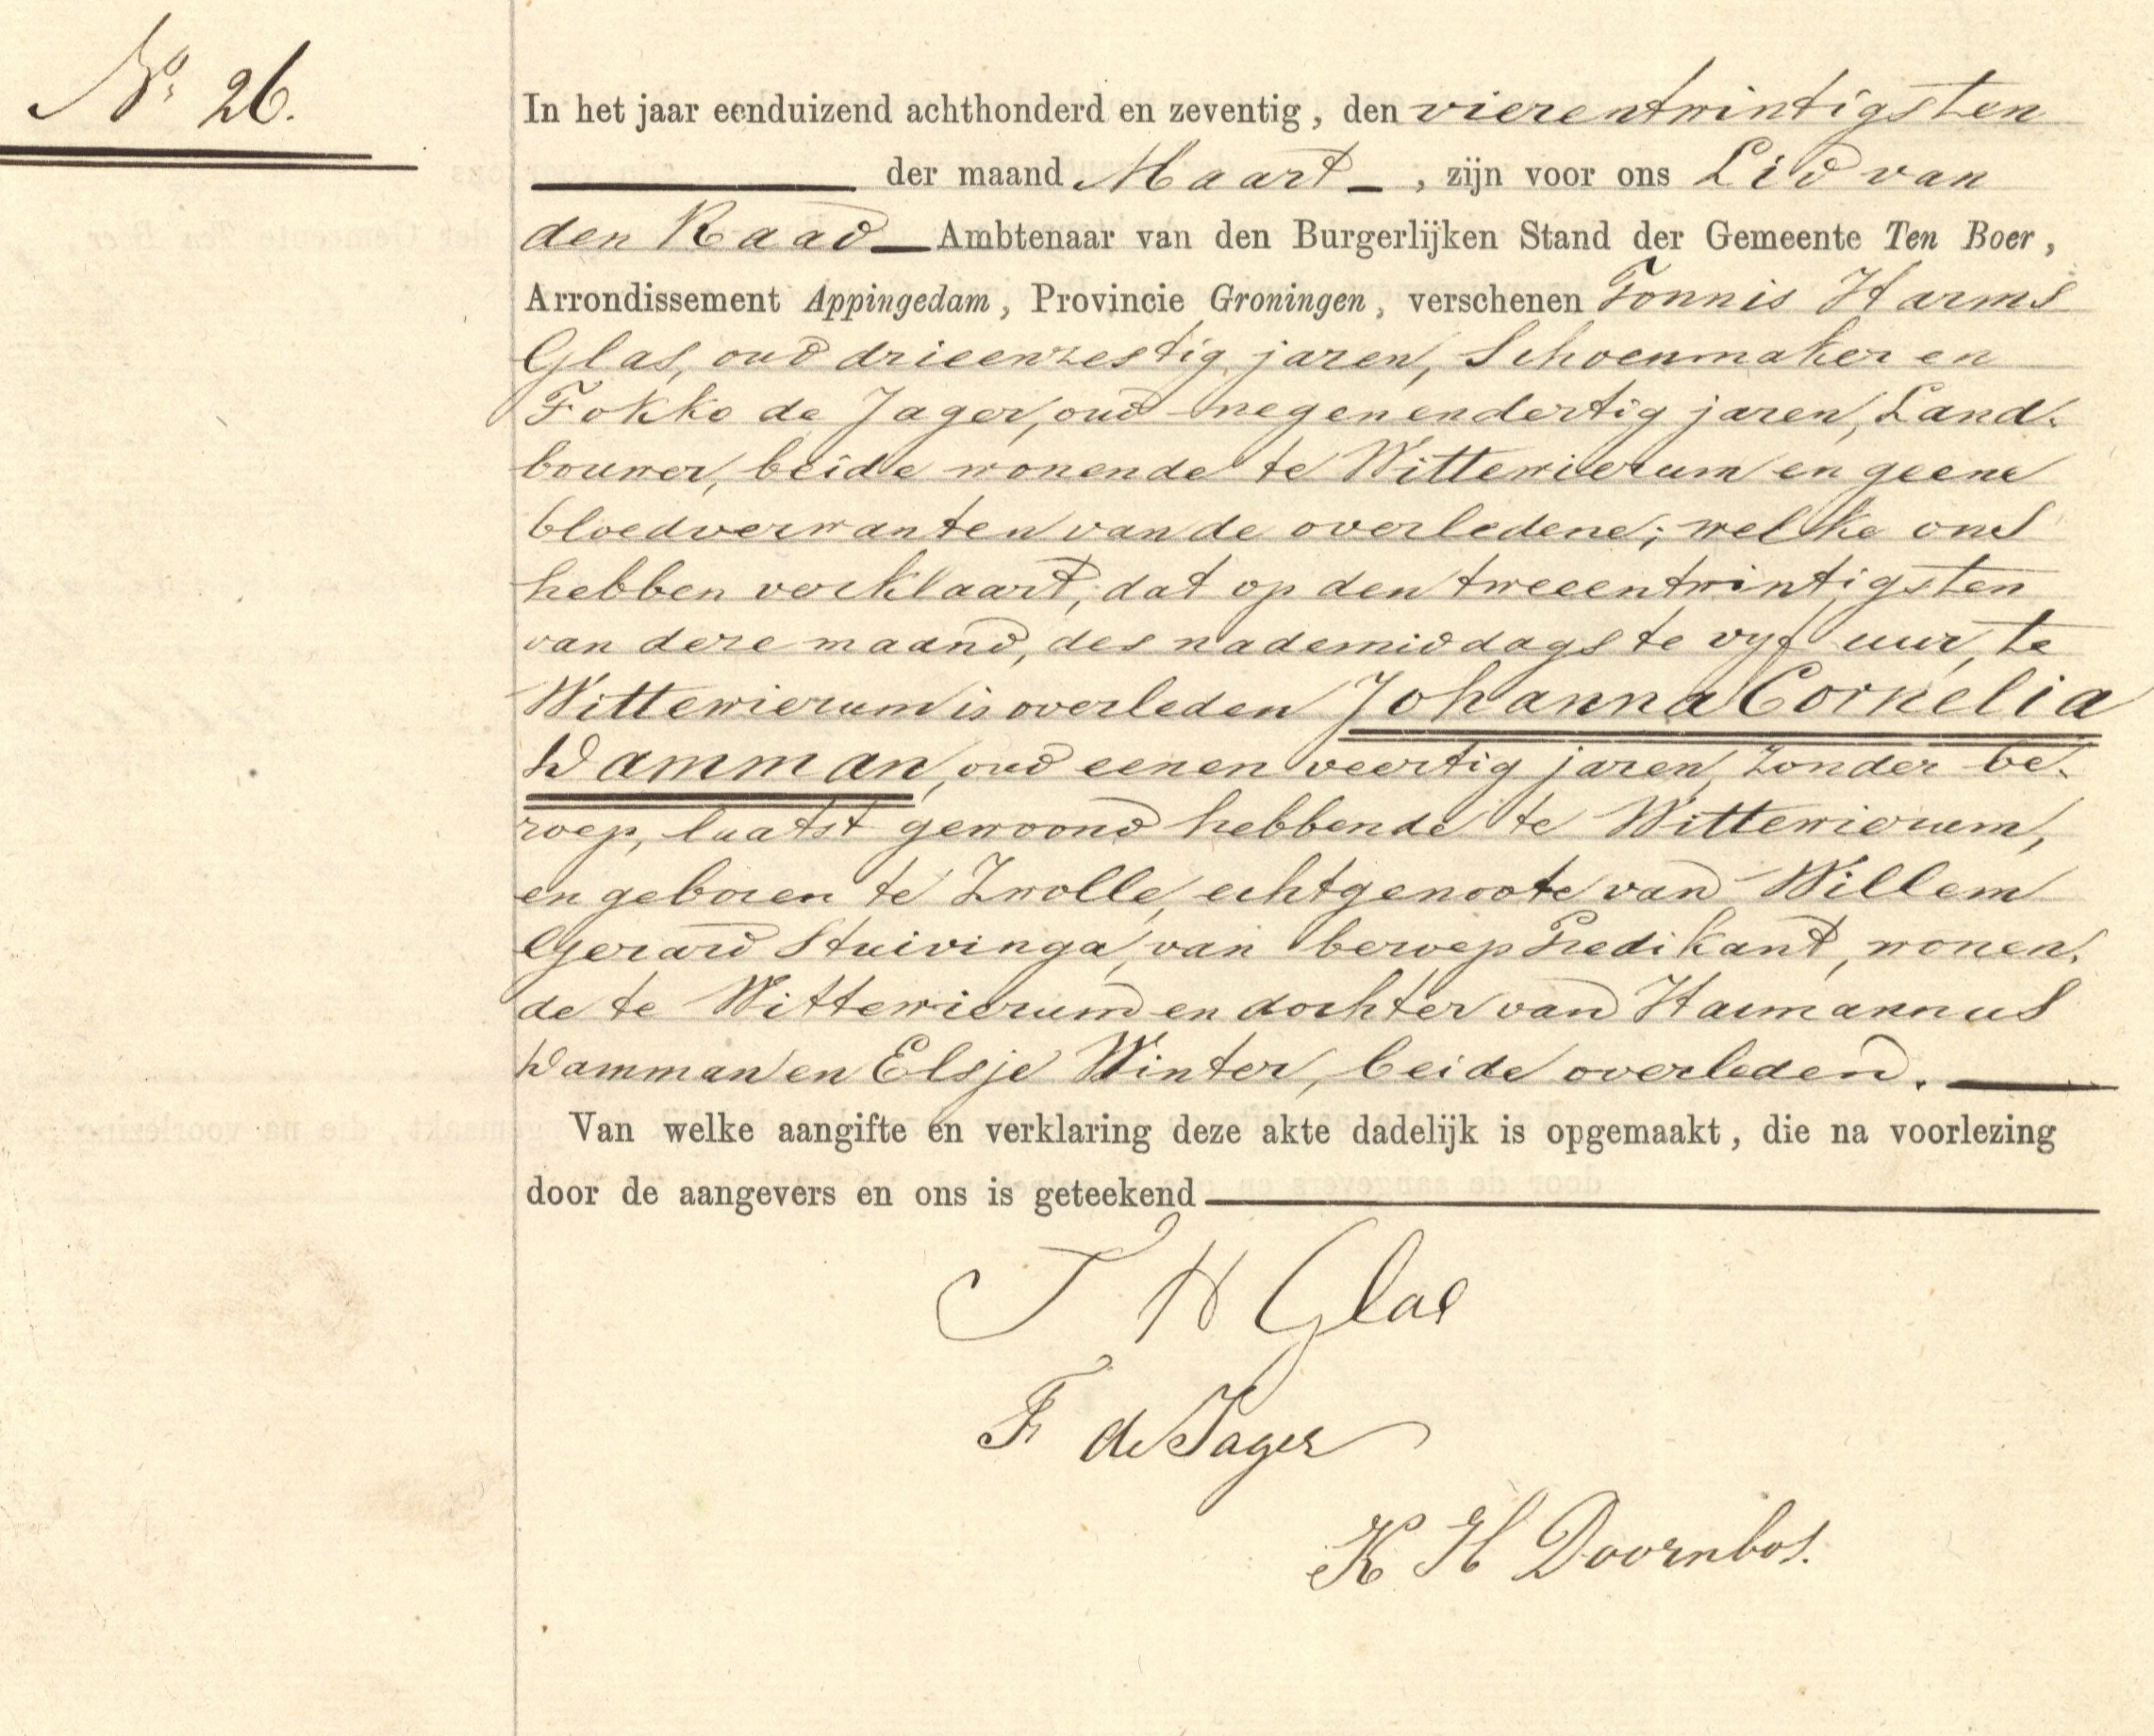 No. 26.
In het jaar eenduizend achthonderd en zeventig, den vierentwintigsten
der maand Maart, zijn voor ons Lid van
den Raad Ambtenaar van den Burgerlijken Stand der Gemeente Ten Boer,
Arrondissement Appingedam, Provincie Groningen, verschenen Tonnis Harms
Glas, oud drieenzestig jaren, Schoenmaker en
Fokko de Jager, oud negenendertig jaren, Land-
bouwer, beide wonende te Wittewierum en geene
bloedverwanten van de overledene; welke ons
hebben verklaart, dat op den tweeentwintigsten
van deze maand, des nademiddags te vyf uur, te
Wittewierum is overleden Johanna Cornelia
Damman, oud eenen veertig jaren, zonder be-
roep, laatst gewoond hebbende te Wittewierum,
en geboren te Zwolle, echtgenoote van Willem
Gerard Stuivinga, van beroep Predikant, wonen-
de te Wittewierum en dochter van Harmannus
Damman en Elsje Winter, beide overleden.
Van welke aangifte en verklaring deze akte dadelijk is opgemaakt, die na voorlezing
door de aangevers en ons is geteekend
T H Glas
F de Jager
K H Doornbos.